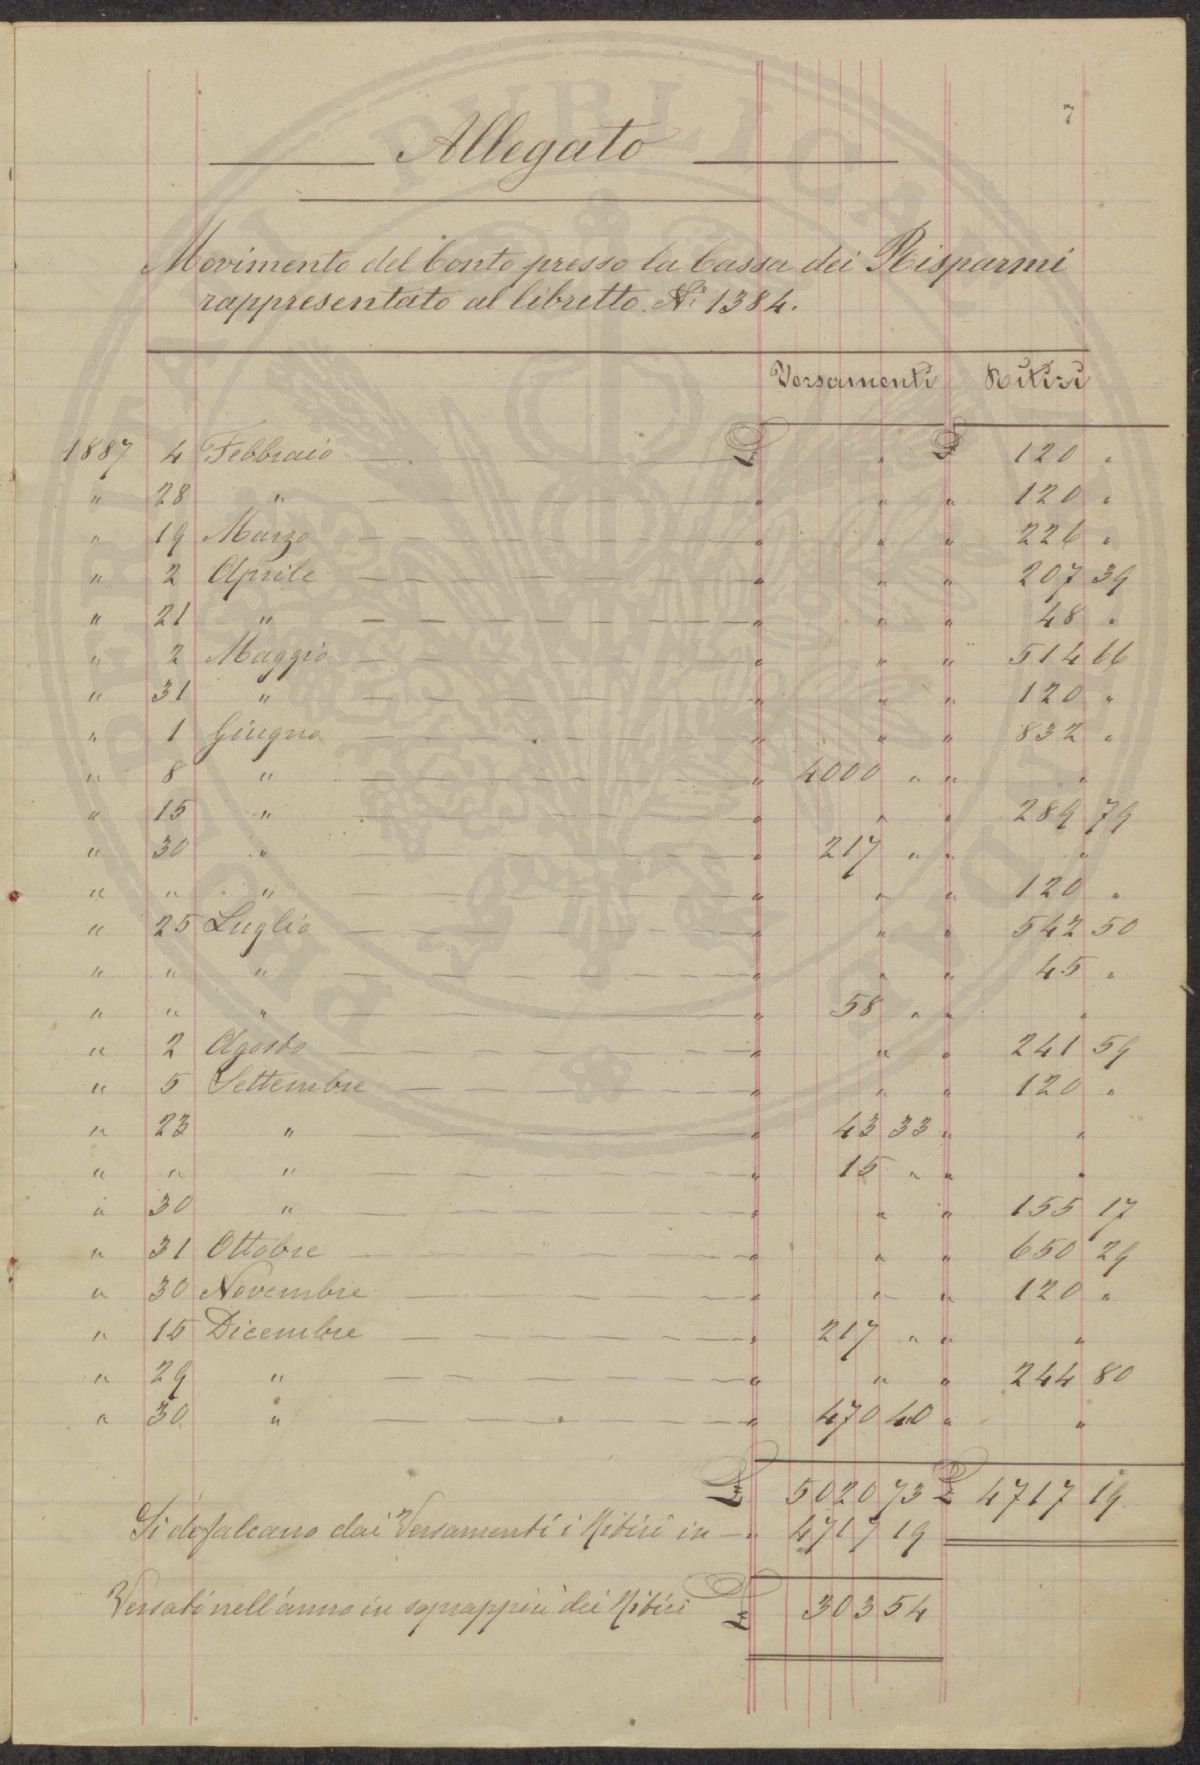 7
Allegato
Movimento del Conto presso la Cassa dei Risparmi
rappresentato al libretto N.º 1384.
Versamenti Ritiri
1887 4 Febbraio L " L 120 "
" 28 " " " " 120 "
" 19 Marzo " " " 226 "
" 2 Aprile " " " 207 39
" 21 " " " " 48 "
" 2 Maggio " " " 514 66
" 31 " " " " 120 "
" 1 Giugno " " " 832 "
" 8 " " 4000 " " "
" 15 " " " " 289 79
" 30 " " 217 " " "
" " " " " " 120 "
" 25 Luglio " " " 542 50
" " " " " " 45 "
" " " " 58 " " "
" 2 Agosto " " " 241 59
" 5 Settembre " " " 120 "
" 23 " " 43 33 " "
" " " " 15 " " "
" 30 " " " " 155 17
" 31 Ottobre " " " 650 29
" 30 Novembre " " " 120 "
" 15 Dicembre " 217 " " "
" 29 " " " " 244 80
" 30 " " 470 40 " "
L 5020 73 L 4717 19
Si defalcano dai Versamenti i Ritiri in " 4717 19
Versati nell'anno in soprappiù dei Ritiri L 303 54